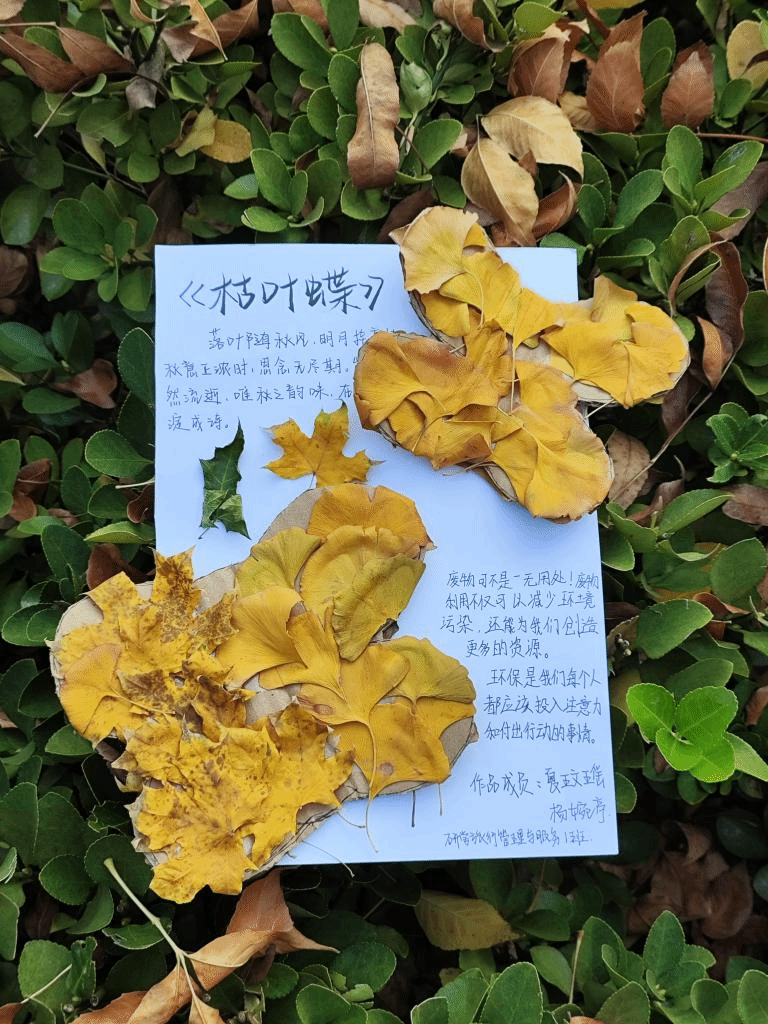 《枯叶蝶》
落叶随秋风，明月
秋意正浓时，思念无尽期。
然流逝，唯秋之韵味，在
淀成诗。
废物可不是一无用处！废物
利用不仅可以减少环境
污染，还能为我们创造
更多的资源。
环保是我们每个人
都应该投入注意力
和付出行动的事情。
作品成员：
杨婉婷
研学旅行管理与服务1班